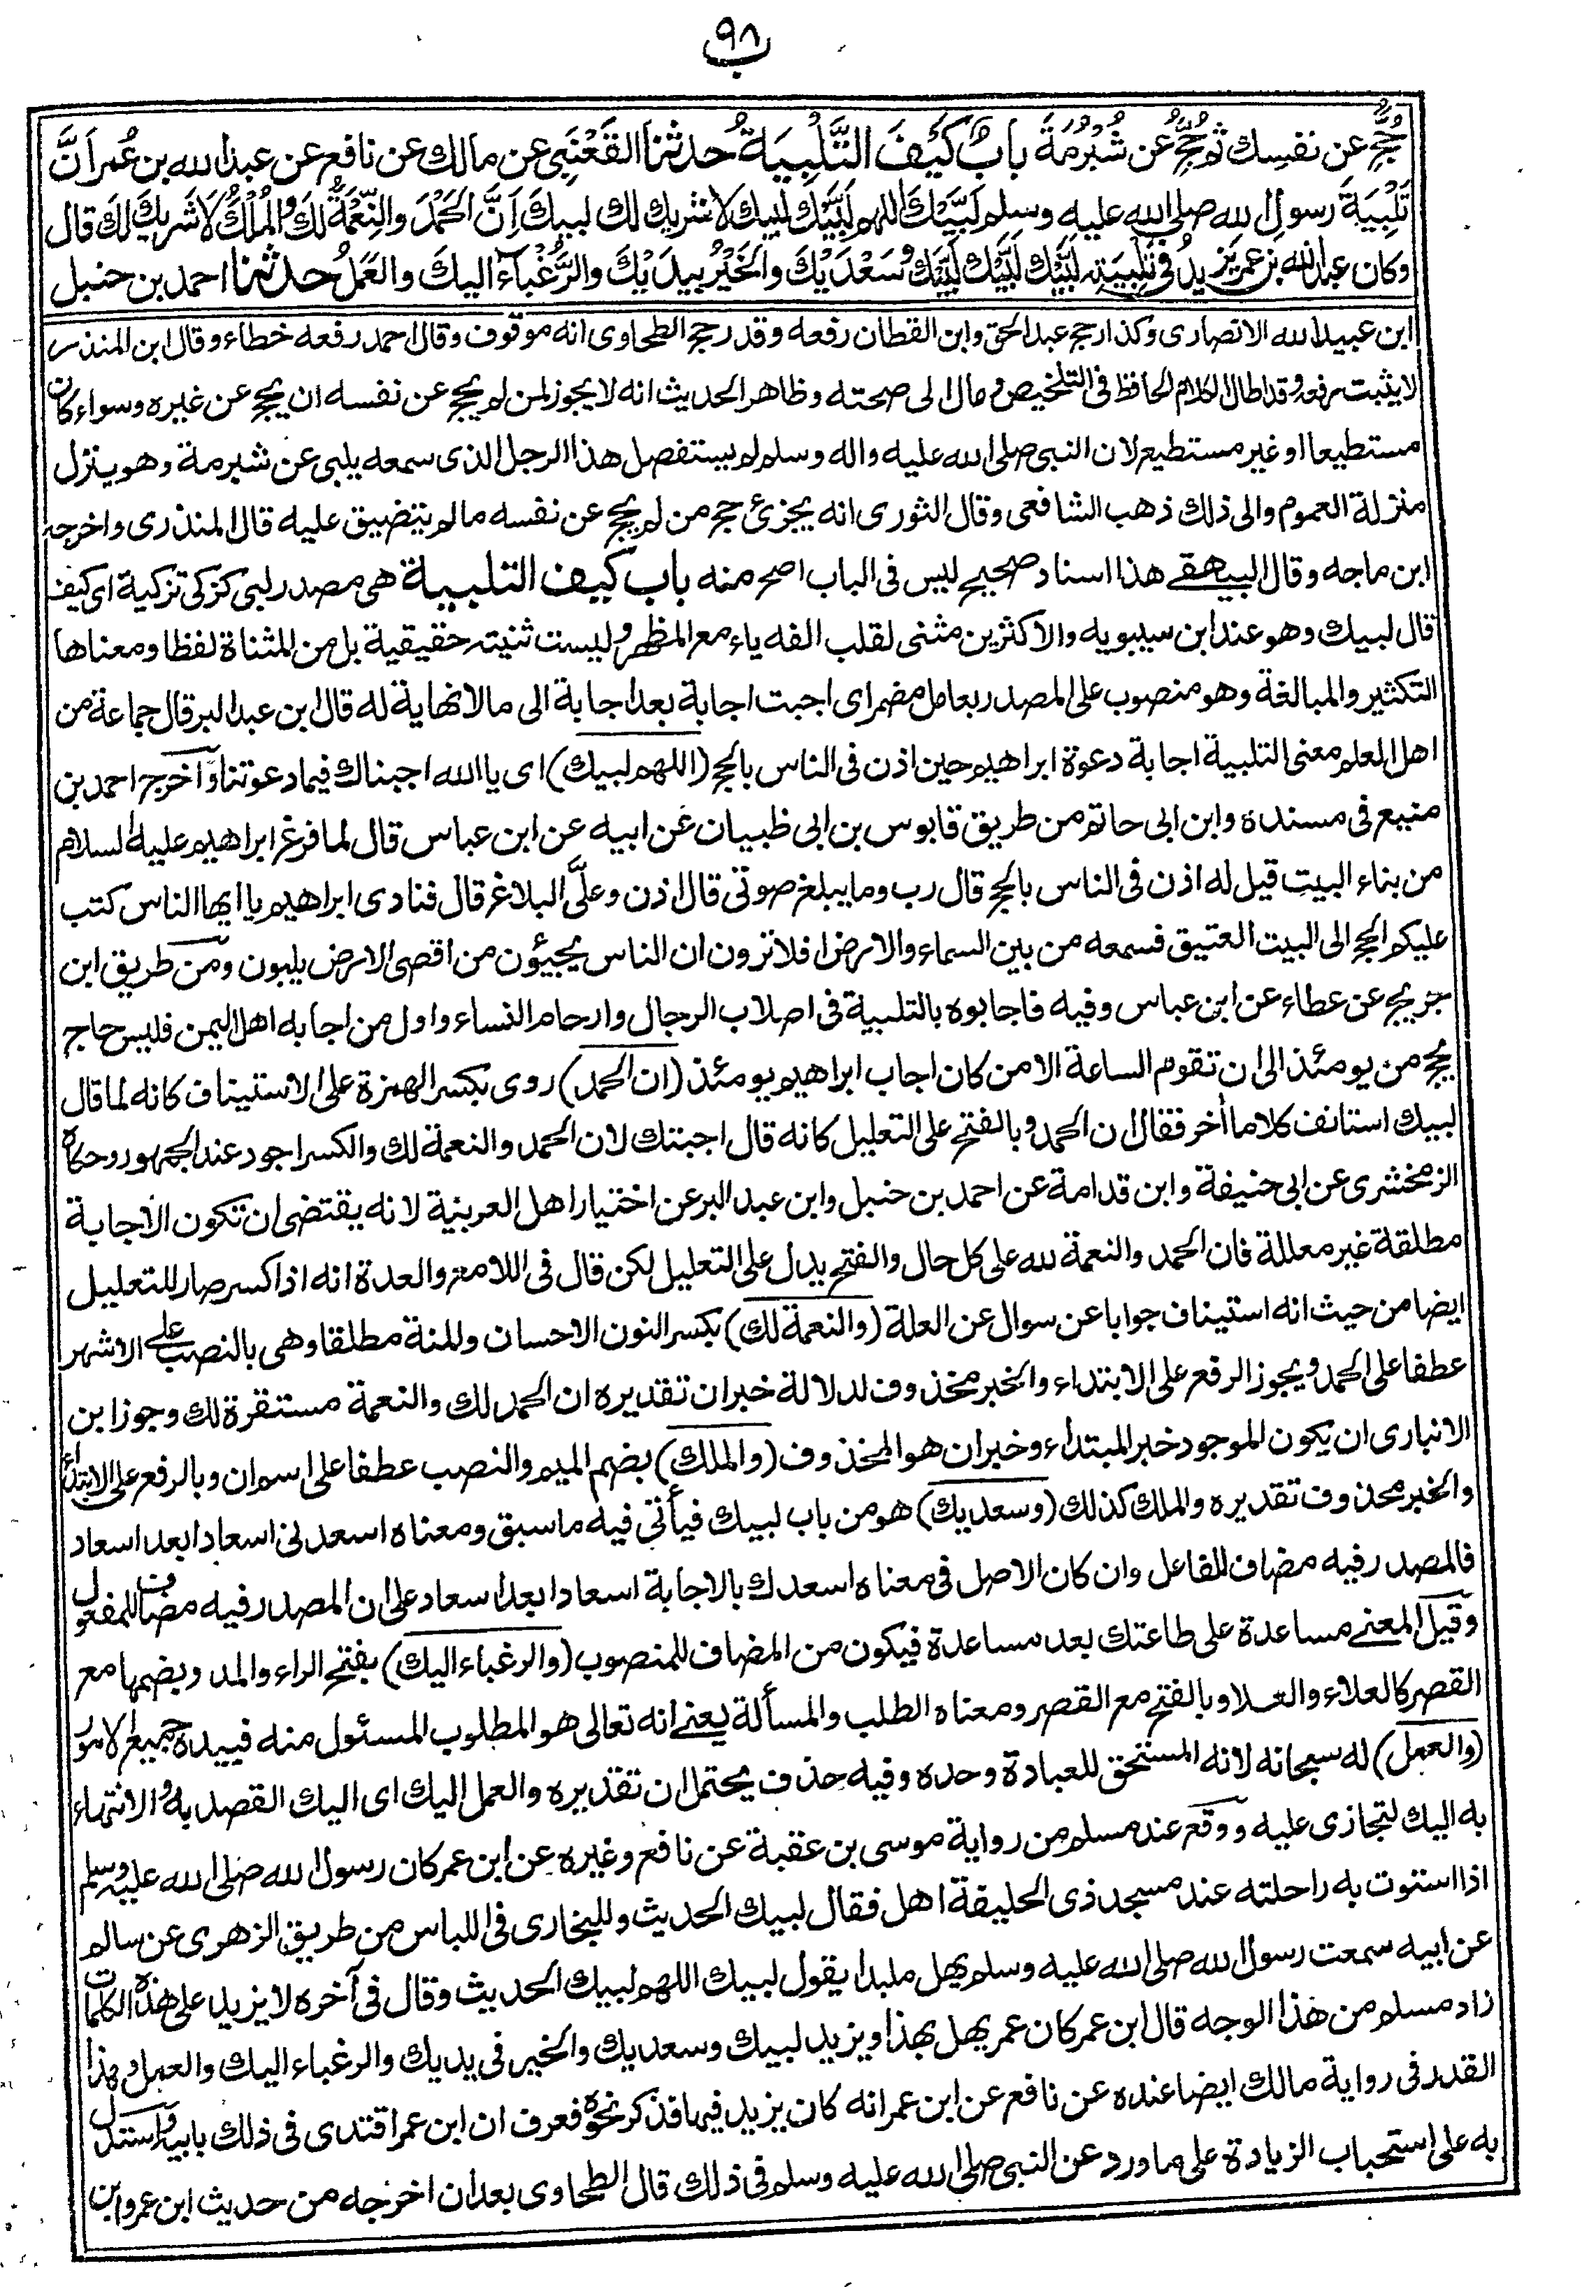 ٩٨
ب
حُجَّ عن نفسِك ثم حُجَّ عن شُبْرُمَةَ بابُ كَيْفَ التَّلْبِيَةُ حدثنا القَعْنَبِى عن مالك عن نافع عن عبد الله بن عُمر اَنَّ
تَلْبِيَةَ رسولِ الله صلى الله عليه وسلم لَبَّيْكَ اللهم لَبَّيْكَ لبيك لا شريك لك لبيك اِنَّ الحَمْدَ والنِّعْمَةَ لَكَ والمُلْكُ لا شريكَ لَكَ قال
وكان عبد الله بن عمر يَزِيدُ فى تَلْبِيَتِه لَبَّيْكَ لَبَّيْكَ لَبَّيْكَ وسَعْدَيْكَ والخَيْرُ بيدَيْكَ والرَّغْبَاءُ اليكَ والعَمَلُ حدثنا احمد بن حنبل
ابن عبيد الله الانصارى وكذا رجح عبد الحق وابن القطان رفعه وقد رجح الطحاوى انه موقوف وقال احمد رفعه خطاء وقال ابن المنذر
لا يثبت رفعه وقد اطال الكلام الحافظ فى التلخيص ومال الى صحته وظاهر الحديث انه لا يجوز لمن لم يحج عن نفسه ان يحج عن غيره وسواء كان
مستطيعا او غير مستطيع لان النبى صلى الله عليه واله وسلم لم يستفصل هذا الرجل الذى سمعه يلبى عن شبرمة وهو ينزل
منزلة العموم والى ذلك ذهب الشافعى وقال الثورى انه يجزئ حج من لم يحج عن نفسه ما لم يتضيق عليه قال المنذرى واخرجه
ابن ماجه وقال البيهقے هذا اسناد صحيح ليس فى الباب اصح منه باب كيف التلبية هى مصدر لبى كزكى تزكية اى كيف
قال لبيك وهو عند ابن سيبويه والاكثرين مثنى لقلب الفه ياء مع المظهر وليست ثنيته حقيقية بل من المثناة لفظا ومعناها
التكثير والمبالغة وهو منصوب على المصدر بعامل مضمر اى اجبت اجابة بعد اجابة الى مالا نهاية له قال ابن عبد البر قال جماعة من
اهل العلم معنى التلبية اجابة دعوة ابراهيم حين اذن فى الناس بالحج (اللهم لبيك) اى يا الله اجبناك فيما دعوتنا وأخرج احمد بن
منيع فى مسنده وابن ابى حاتم من طريق قابوس بن ابى ظبيان عن ابيه عن ابن عباس قال لما فرغ ابراهيم عليه السلام
من بناء البيت قيل له اذن فى الناس بالحج قال رب وما يبلغ صوتى قال اذن وعلىَّ البلاغ قال فنادى ابراهيم يا ايها الناس كتب
عليكم الحج الى البيت العتيق فسمعه من بين السماء والارض افلا ترون ان الناس يجيئون من اقصى الارض يلبون ومن طريق ابن
جريج عن عطاء عن ابن عباس وفيه فاجابوه بالتلبية فى اصلاب الرجال وارحام النساء واول من اجابه اهل اليمن فليس حاج
يحج من يومئذ الى ان تقوم الساعة الا من كان اجاب ابراهيم يومئذ (ان الحمد) روى بكسر الهمزة على الاستيناف كانه لما قال
لبيك استانف كلاما أخر فقال ان الحمد وبالفتح على التعليل كانه قال اجبتك لان الحمد والنعمة لك والكسر اجود عند الجمهور وحكاه
الزمخشرى عن ابى حنيفة وابن قدامة عن احمد بن حنبل وابن عبد البر عن اختيار اهل العربية لانه يقتضى ان تكون الاجابة
مطلقة غير معللة فان الحمد والنعمة لله على كل حال والفتح يدل على التعليل لكن قال فى اللامع والعدة انه اذا كسر صار للتعليل
ايضا من حيث انه استيناف جوابا عن سوال عن العلة (والنعمة لك) بكسر النون الاحسان والمنة مطلقا وهى بالنصب على الاشهر
عطفا على الحمد ويجوز الرفع على الابتداء والخبر محذوف لدلالة خبر ان تقديره ان الحمد لك والنعمة مستقرة لك وجوز ابن
الانبارى ان يكون الموجود خبر المبتداء وخبر ان هو المحذوف (والملك) بضم الميم والنصب عطفا على اسم ان وبالرفع على الابتداء
والخبر محذوف تقديره والملك كذلك (وسعديك) هو من باب لبيك فيأتى فيه ما سبق ومعناه اسعدنى اسعادا بعد اسعاد
فالمصدر فيه مضاف للفاعل وان كان الاصل فى معناه اسعدك بالاجابة اسعادا بعد اسعاد على ان المصدر فيه مضاف للمفعول
وقيل المعنے مساعدة على طاعتك بعد مساعدة فيكون من المضاف للمنصوب (والرغباء اليك) بفتح الراء والمد وبضمها مع
القصر كالعلاء والعلا وبالفتح مع القصر ومعناه الطلب والمسألة يعنے انه تعالى هو المطلوب المسئول منه فبيده جميع الامور
(والعمل) له سبحانه لانه المستحق للعبادة وحده وفيه حذف يحتمل ان تقديره والعمل اليك اى اليك القصد به والانتهاء
به اليك لتجازى عليه ووقع عند مسلم من رواية موسى بن عقبة عن نافع وغيره عن ابن عمر كان رسول الله صلى الله عليه وسلم
اذا استوت به راحلته عند مسجد ذى الحليفة اهل فقال لبيك الحديث وللبخارى فى اللباس من طريق الزهرى عن سالم
عن ابيه سمعت رسول الله صلى الله عليه وسلم يهل ملبدا يقول لبيك اللهم لبيك الحديث وقال فى آخره لا يزيد على هذه الكلمات
زاد مسلم من هذا الوجه قال ابن عمر كان عمر يهل بهذا ويزيد لبيك وسعديك والخير فى يديك والرغباء اليك والعمل وهذا
القدر فى رواية مالك ايضا عنده عن نافع عن ابن عمر انه كان يزيد فيها فذكر نحوه فعرف ان ابن عمر اقتدى فى ذلك بابيه واستدل
به على استحباب الزيادة على ما ورد عن النبى صلى الله عليه وسلم فى ذلك قال الطحاوى بعد ان اخرجه من حديث ابن عمر وابن